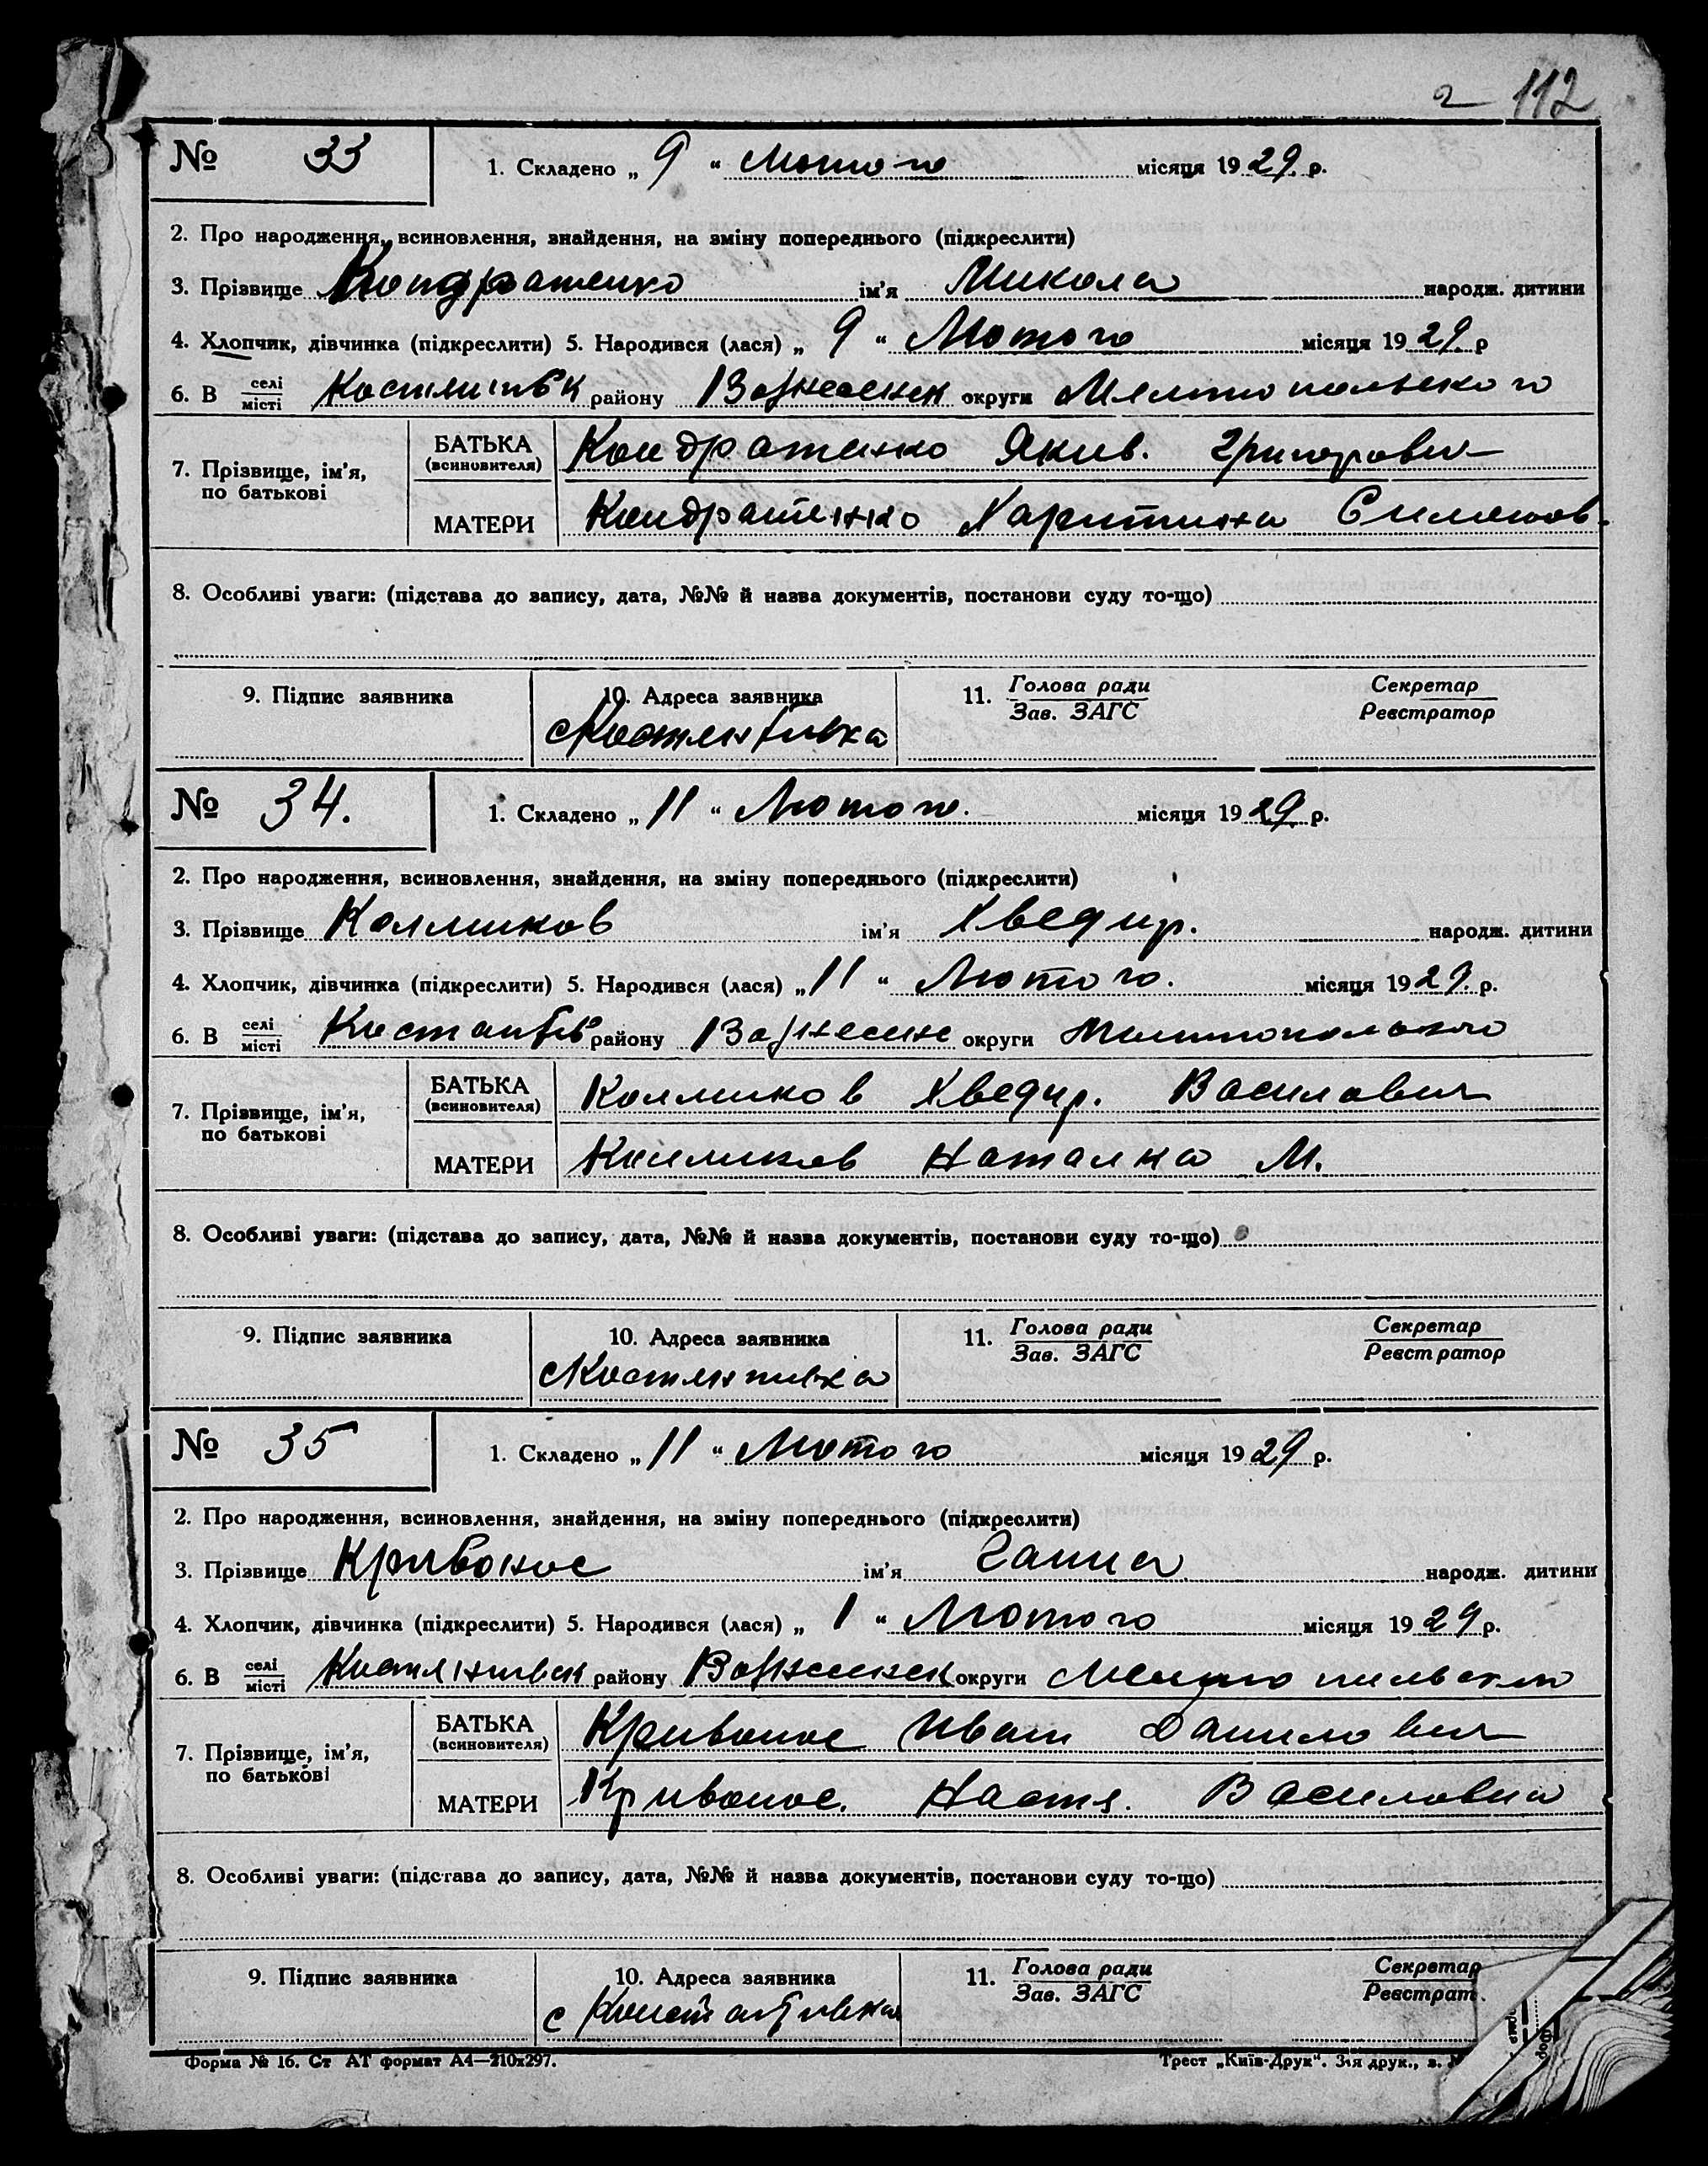 2 112
№ 33 1. Складено „ 9 “ Лютого місяця 1929 р.
2. Про народження, всиновлення, знайдення, на зміну попереднього (підкреслити)
3. Прізвище Кондратенко ім'я Микола народж. дитини
4. Хлопчик, дівчинка (підкреслити) 5. Народився (лася) „ 9 “ Лютого місяця 1929 р
6. В селі/місті району Вознесенск округи Мелитопольского
7. Прізвище, ім'я, по батькові БАТЬКА (всиновителя) Кондратенко Якив. Григорович
МАТЕРИ Кондратенко Харитина
8. Особливі уваги: (підстава до запису, дата, №№ й назва документів, постанови суду то-що)
9. Підпис заявника 10. Адреса заявника 11. Голова ради/Зав. ЗАГС Секретар/Реєстратор
№ 34. 1. Складено „ 11 “ Лютого. місяця 1929 р.
2. Про народження, всиновлення, знайдення, на зміну попереднього (підкреслити)
3. Прізвище Калмиков ім'я Хведир. народж. дитини
4. Хлопчик, дівчинка (підкреслити) 5. Народився (лася) „ 11 “ Лютого. місяця 1929. р.
6. В селі/місті району Вознесенс округи
7. Прізвище, ім'я, по батькові БАТЬКА (всиновителя) Калмиков Хведир. Василович
МАТЕРИ Калмиков Наталка М.
8. Особливі уваги: (підстава до запису, дата, №№ й назва документів, постанови суду то-що)
9. Підпис заявника 10. Адреса заявника 11. Голова ради/Зав. ЗАГС Секретар/Реєстратор
№ 35 1. Складено „ 11 “ Лютого місяця 1929 р.
2. Про народження, всиновлення, знайдення, на зміну попереднього (підкреслити)
3. Прізвище Кривонос ім'я Ганна народж. дитини
4. Хлопчик, дівчинка (підкреслити) 5. Народився (лася) „ 1 “ Лютого місяця 1929 р.
6. В селі/місті району Вознесенск округи
7. Прізвище, ім'я, по батькові БАТЬКА (всиновителя) Кривонос Иван Данилович
МАТЕРИ Кривонос. Настя. Василовна
8. Особливі уваги: (підстава до запису, дата, №№ й назва документів, постанови суду то-що)
9. Підпис заявника 10. Адреса заявника 11. Голова ради/Зав. ЗАГС Секретар/Реєстрат.
с Константивка
Форма № 16. Ст АТ формат А4—210х297. Трест „Київ-Друк“. 3-я друк., з.